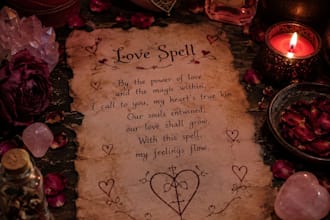 Love Spell
By the power of love
and the magic within,
I call to you, my heart's true kin
Our souls entwined,
our love shall grow,
With this spell,
my feelings flow.